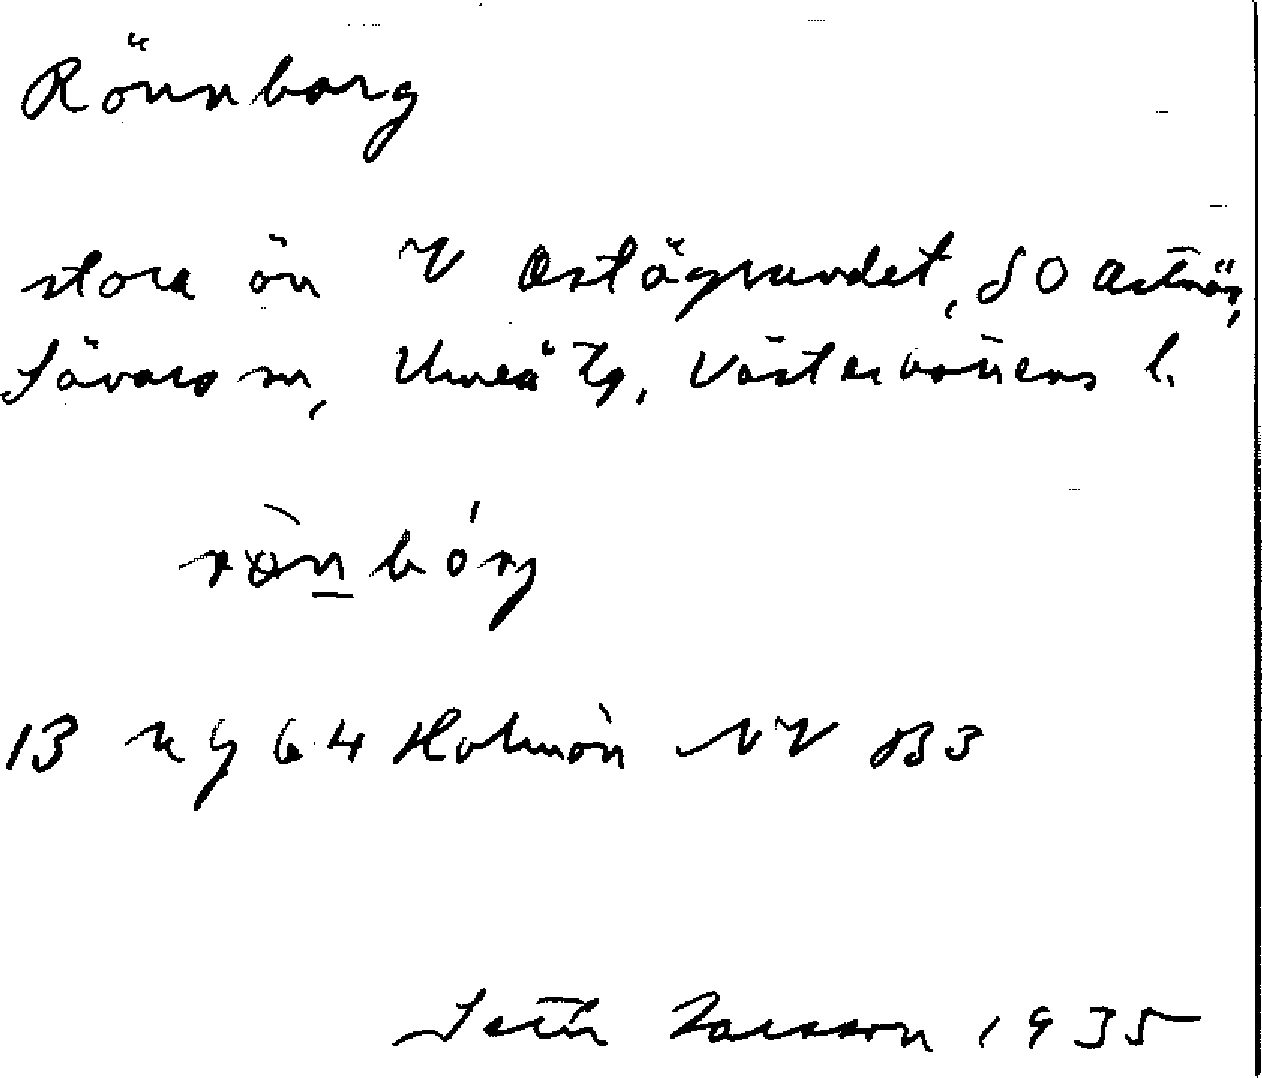 Rönnborg
stora ön V Ostögrundet, SO Ostnäs,
Sävars sn, Umeå tg, Västerbottens l.
rön bórg
13 Kg 64 Holmön NV B3
Seth Larsson 1935